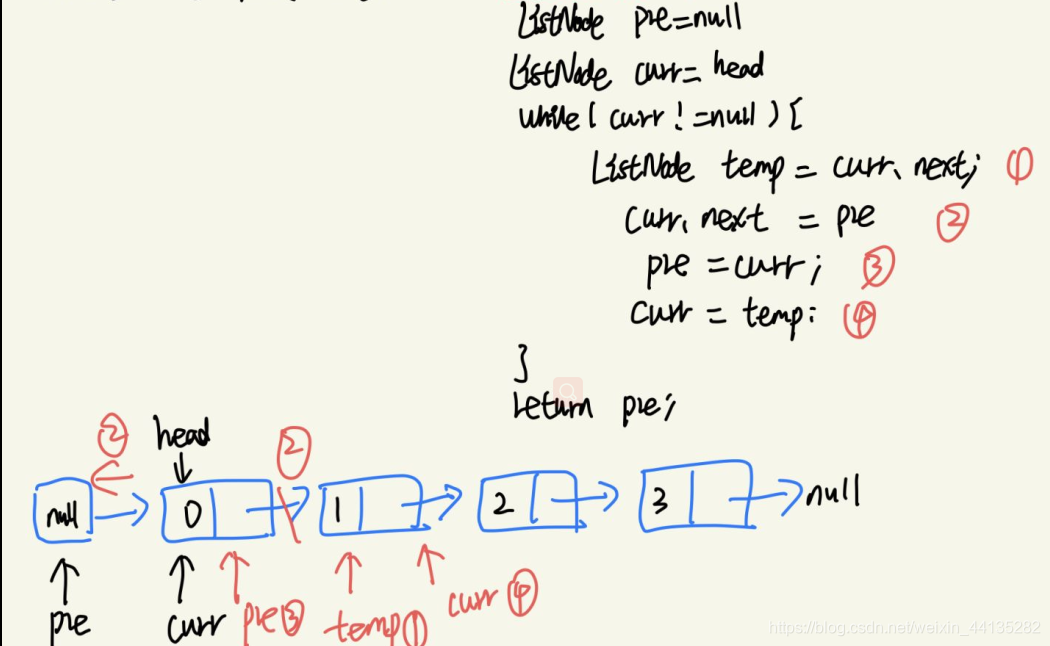 ListNode pre=null
ListNode curr=head
while(curr!=null){
ListNode temp = curr.next; ①
curr.next = pre ②
pre = curr; ③
curr = temp; ④
}
return pre;
② head ②
null 0 1 2 3 null
pre curr pre③ temp① curr④
https://blog.csdn.net/weixin_44135282